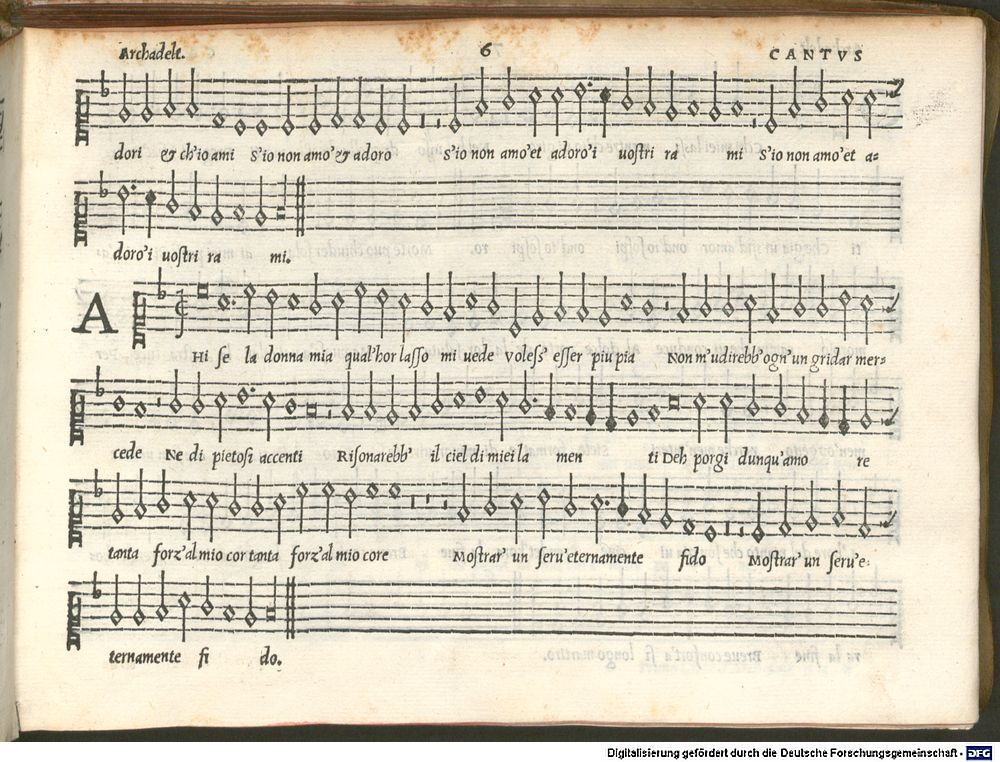 Archadelt.
6
CANTVS
dori & ch'io ami s'io non amo' & adoro s'io non amo'et adoro'i uostri ra mi s'io non amo'et a=
doro'i uostri ra mi.
A
Hi se la donna mia qual'hor lasso mi uede voless' esser piu pia Non m'udirebb' ogn'un gridar mer=
cede Ne di pietosi accenti Risonarebb' il ciel di miei la men ti Deh porgi dunqu'amo re
tanta forz'al mio cor tanta forz'al mio core Mostrar un seru'eternamente fido Mostrar un seru'e=
ternamente fi do.
Digitalisierung gefördert durch die Deutsche Forschungsgemeinschaft - DFG